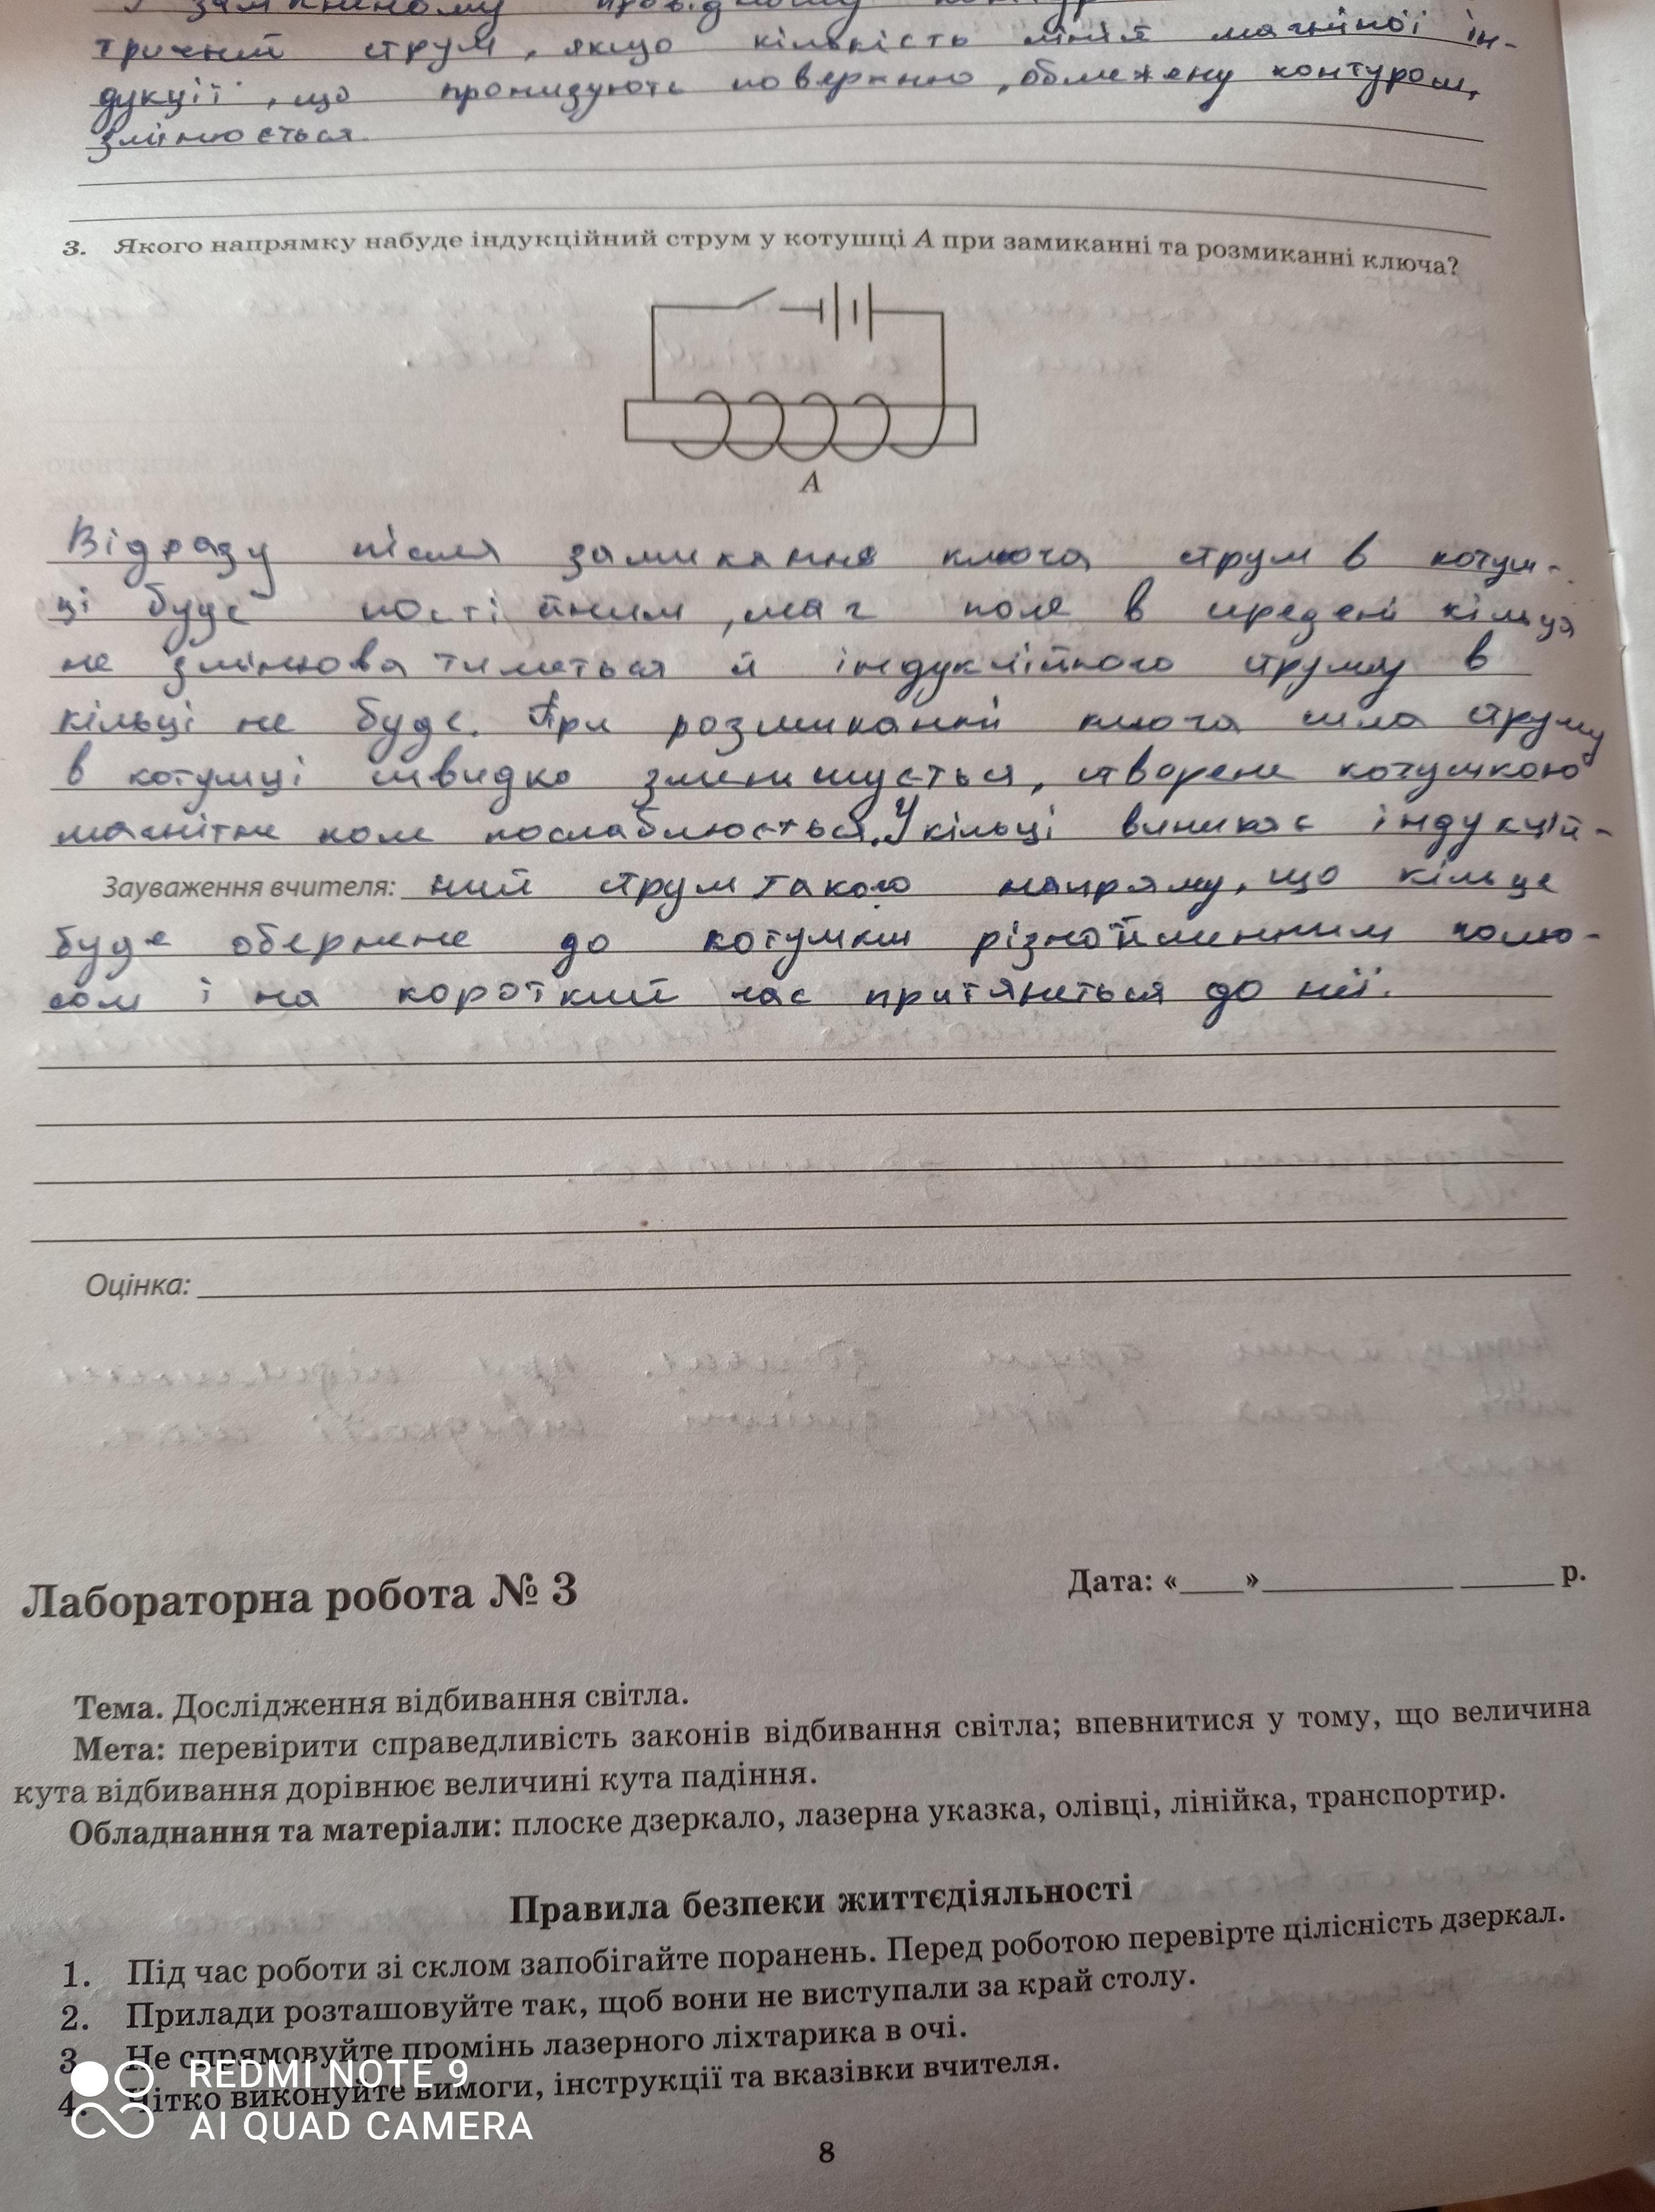 У замкненому провідному контурі
тричний струм, якщо кількість ліній магнітної ін-
дукції, що пронизують поверхню, обмежену контуром,
змінюється
3. Якого напрямку набуде індукційний струм у котушці А при замиканні та розмиканні ключа?
А
Відразу після замикання ключа струм в котуш-
ці буде постійним, маг поле в середені кільця
не змінюватиметься й індукційного струму в
кільці не буде. При розмиканні ключа сила струму
в котушці швидко зменшується, створене котушкою
магнітне поле послаблюється. У кільці виникає індукцій-
Зауваження вчителя: ний струм такого напряму, що кільце
буде обернене до котушки різнойменним полю-
сом і на короткий час притянеться до неї.
Оцінка:
Лабораторна робота № 3
Дата: «____»____________ ______ р.
Тема. Дослідження відбивання світла.
Мета: перевірити справедливість законів відбивання світла; впевнитися у тому, що величина
кута відбивання дорівнює величині кута падіння.
Обладнання та матеріали: плоске дзеркало, лазерна указка, олівці, лінійка, транспортир.
Правила безпеки життєдіяльності
1. Під час роботи зі склом запобігайте поранень. Перед роботою перевірте цілісність дзеркал.
2. Прилади розташовуйте так, щоб вони не виступали за край столу.
3. Не спрямовуйте промінь лазерного ліхтарика в очі.
4. Чітко виконуйте вимоги, інструкції та вказівки вчителя.
REDMI NOTE 9
AI QUAD CAMERA
8